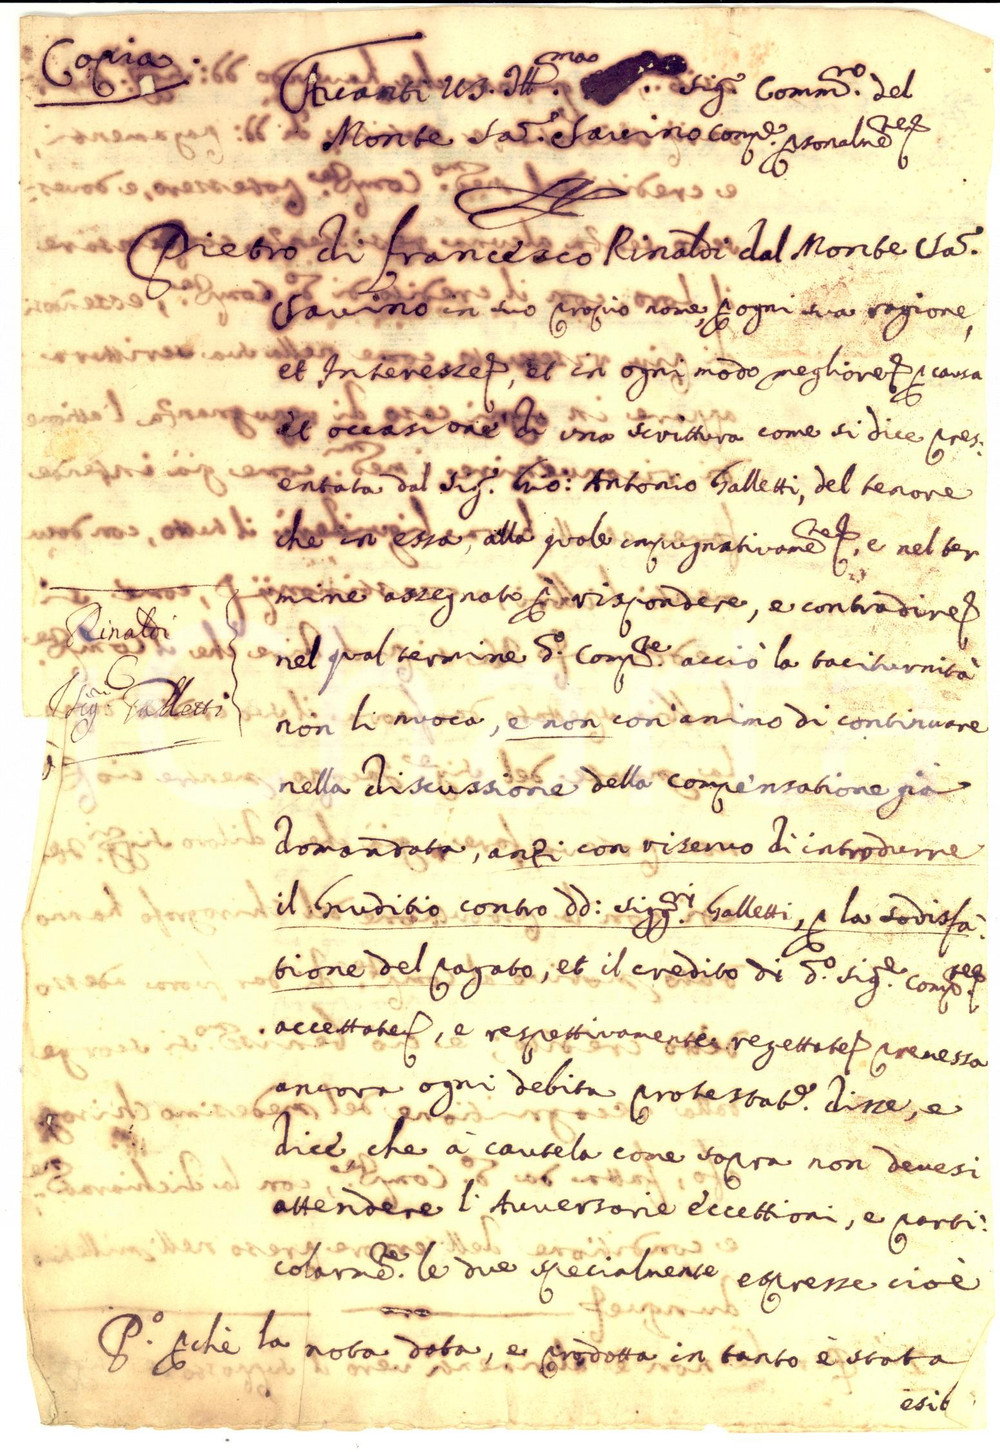 Copia.
Avanti VS. Ill.ma Sig.r Comm.o del
Monte San Savino comp.e psonalm.te
Pietro di Francesco Rinaldi dal Monte San
Savino in suo proprio nome, p ogni sua ragione,
et Interesse, et in ogni modo megliore p causa
et occasione di una scrittura come si dice pres:
entata dal Sig.r Gio: Antonio Galletti, del tenore
che in essa, alla quale impugnativam.te, e nel ter
mine assegnato p rispondere, e contradire
nel qual termine d.o Comp.te acciò la taciturnità
non li nuoca, e non con animo di continuare
nella discussione della compensatione già
domandata, anzi con riservo di introdurre
il Giuditio contro dd: Sigg.ri Galletti, p la sodisfa:
tione del pagato, et il credito di d.o Sig.e Comp.te
accettate, e respettivamente regettate premessa
ancora ogni debita protestat.e disse, e
dice che à cautela come sopra non devesi
attendere l'Avversarie eccettioni, e parti:
colarm.te le due specialmente espresse cioè
P.o pchè la nota data, e prodotta in tanto è stata
esib
Rinaldi
C
Sig.ri Galletti